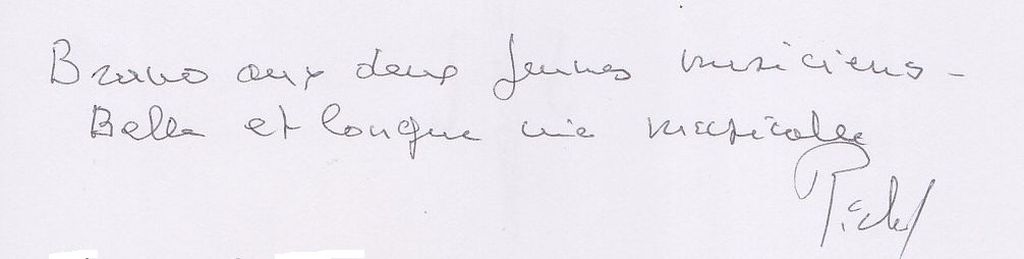 Bravo aux deux jeunes musiciens -
Belle et longue vie musicale